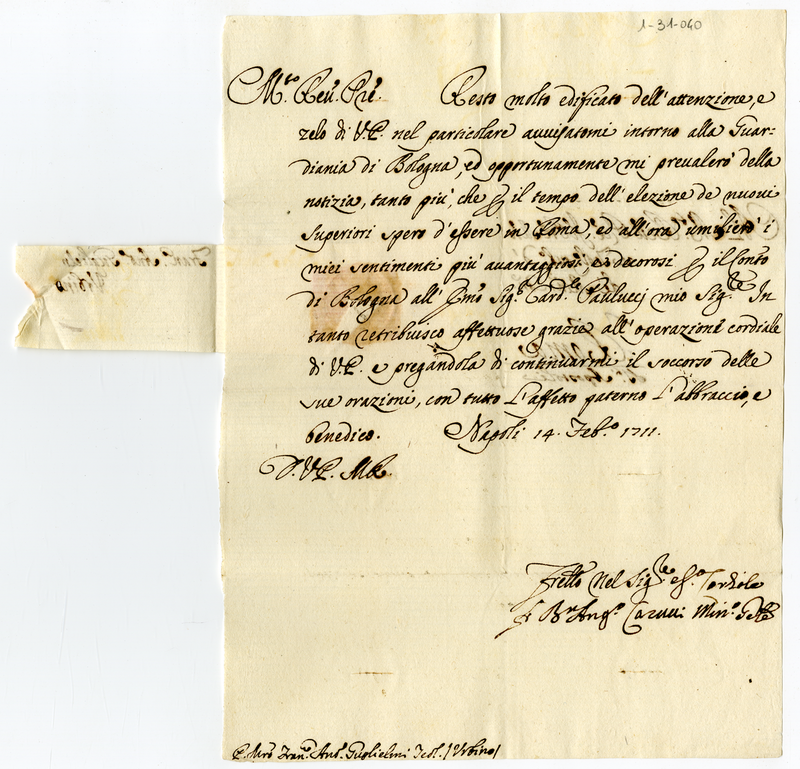 1-31-040
M.to Reu. Pre. Resto molto edificato dell'attenzione, e
zelo di V.P. nel particolare auuisatomi intorno alla Guar-
diania di Bologna, ed opportunamente mi preualerò della
notizia, tanto più, che il tempo dell'elezione de nuoui
Superiori spero d'essere in Roma, ed all'ora umilierò i
miei sentimenti più auantaggiosi, e decorosi il sonto
di Bologna all' Em̃o Sig.r Card.le Paulucci mio Sig.re In
tanto retribuisco affettuose grazie all'operazione cordiale
di V.P. e pregandola di continuarmi il soccorso delle
sue orazioni, con tutto l'affetto paterno l'abbraccio, e
benedico. Napoli 14. Feb.o 1711.
D. V.P. M.R.
Fr̃ello Nel Sig.re
f. B Ang.o Carucci Min.o G
P. Mrõ Fran.o Ant. Guglielmi Teol. / Urbino /